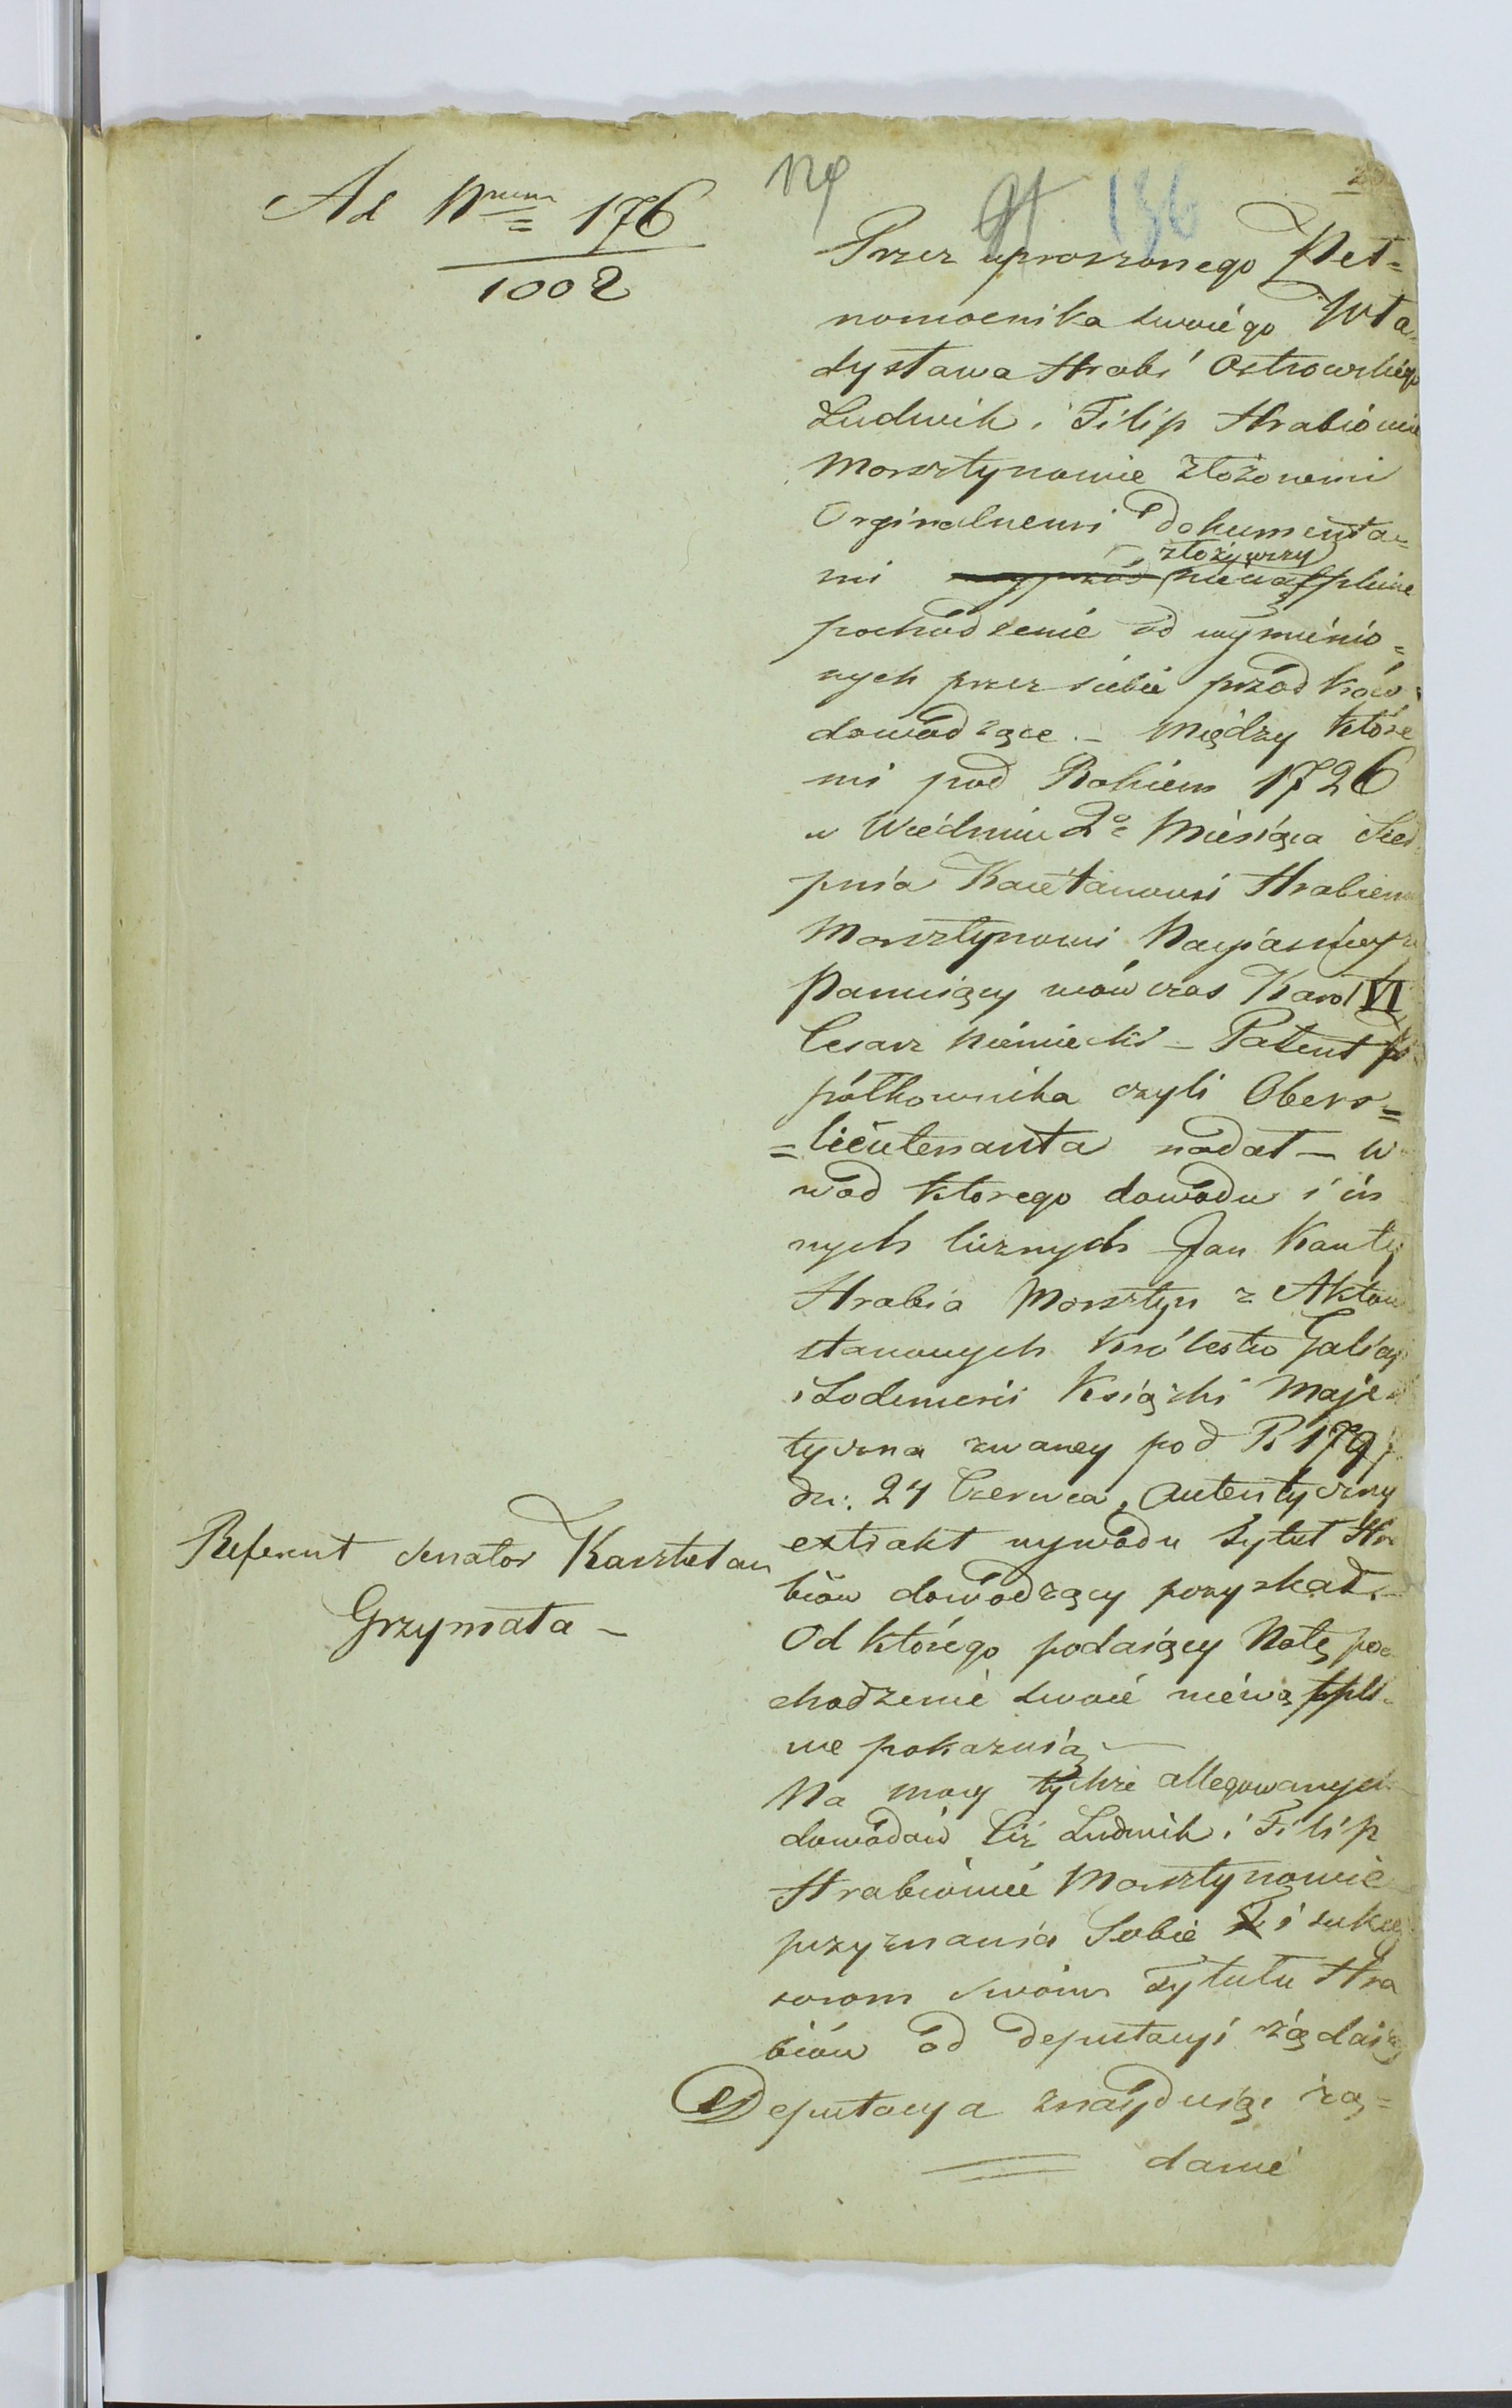 Ad Nrum 176
1002
Przez uproszonego Peł=
nomocnika swoiégo Wła
dysława Hrabi Ostrowskiego
Ludwik i Filip Hrabiówie
Morsztynowie złożonemi
Orginalnemi Dokumenta=
mi złożywszy niewątpliwe
pochódzenié od wymiénio=
nych przez siebié przódków
dowódzące. – Między które
mi pod Rokiem 1726
w Wiédniu 2o Miésiąca Sier
pnia Kaiétanowi Hrabiemu
Morsztynowi Nayiaśniey
Panuiący wówczas Karol VI
Cesarz Niémiecki – Patent
półkownika czyli Obers=
=lieutenanta nadał – w
wód ktorego dowodu i in
nych licznych Jan Kanty
Hrabia Morsztyn z Aktów
stanowych Królestw Galicyi
i Lodomerii Ksiąžki Maje
tyczna zwaney pod R 179
dn: 24 Czerwca, autentyczny
extrakt wywodu tytuł Hra
biów dowódzący pozyskał. –
Od którégo podaiący Notę po
chodzenié swoié niéwątpli
we pokazuią –
Na mocy tychże allegowanych
dowódów Ciż Ludwik i Filip
Hrabiówié Morsztynowie
przyznania Sobie i sukces
sorom swoim Tytułu Hra
biów od Deputacyi żądaią
Deputacya znayduiąc żą=
danié
Referent Senator Kasztelan
Grzymała –